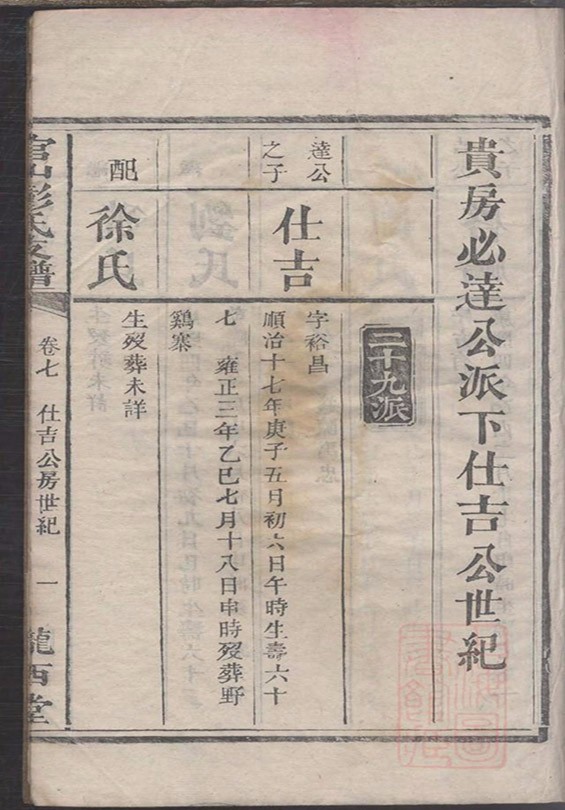 貴房必達公派下仕吉公世紀
二十九派
達公之子
仕吉
字裕昌
順治十七年庚子五日初六日午時生壽六十
七 雍正三年乙巳七月十八日申時歿葬野
鷄寨
配
徐氏
生歿葬未詳
官山彭氏支譜
卷七 仕吉公房世紀 一
隴西堂